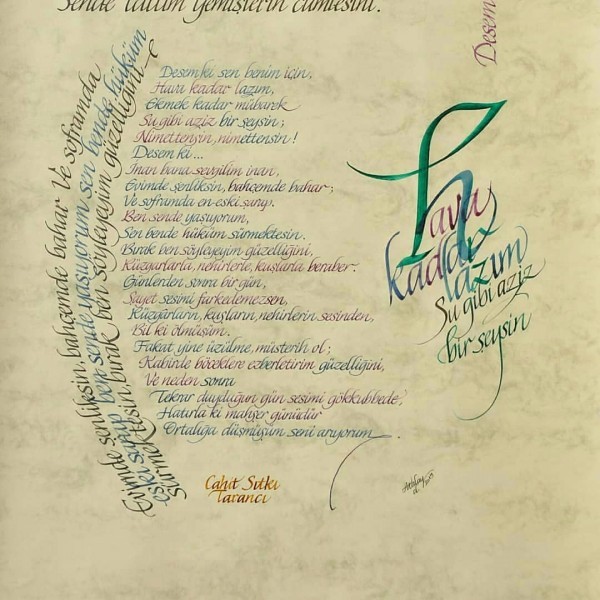 Sende tattım yemişlerin cümlesini.
Desem
Desem ki sen benim için,
Hava kadar lazım,
Ekmek kadar mübarek
Su gibi aziz bir şeysin;
Nimettensin, nimettensin!
Desem ki...
İnan bana sevgilim inan,
Evimde şenliksin, bahçemde bahar;
Ve soframda en eski şarap.
Ben sende yaşıyorum,
Sen bende hüküm sürmektesin.
Bırak ben söyleyeyim güzelliğini,
Rüzgarlarla, nehirlerle, kuşlarla beraber.
Günlerden sonra bir gün,
Şayet sesimi farkedemezsen,
Rüzgârların, kuşların, nehirlerin sesinden,
Bil ki ölmüşüm.
Fakat yine üzülme, müsterih ol;
Kabirde böceklere ezberletirim güzelliğini,
Ve neden sonra
Tekrar duyduğun gün sesimi gökkubbede,
Hatırla ki mahşer günüdür
Ortalığa düşmüşüm seni arıyorum.
Evimde şenliksin, bahçemde bahar Ve soframda
eski şarap ben sende yaşıyorum sen bende hüküm
sürmektesin, bırak ben söyleyeyim güzelliğini
Hava
kadar
lazım
Su gibi aziz
bir şeysin
Cahit Sıtkı
Tarancı